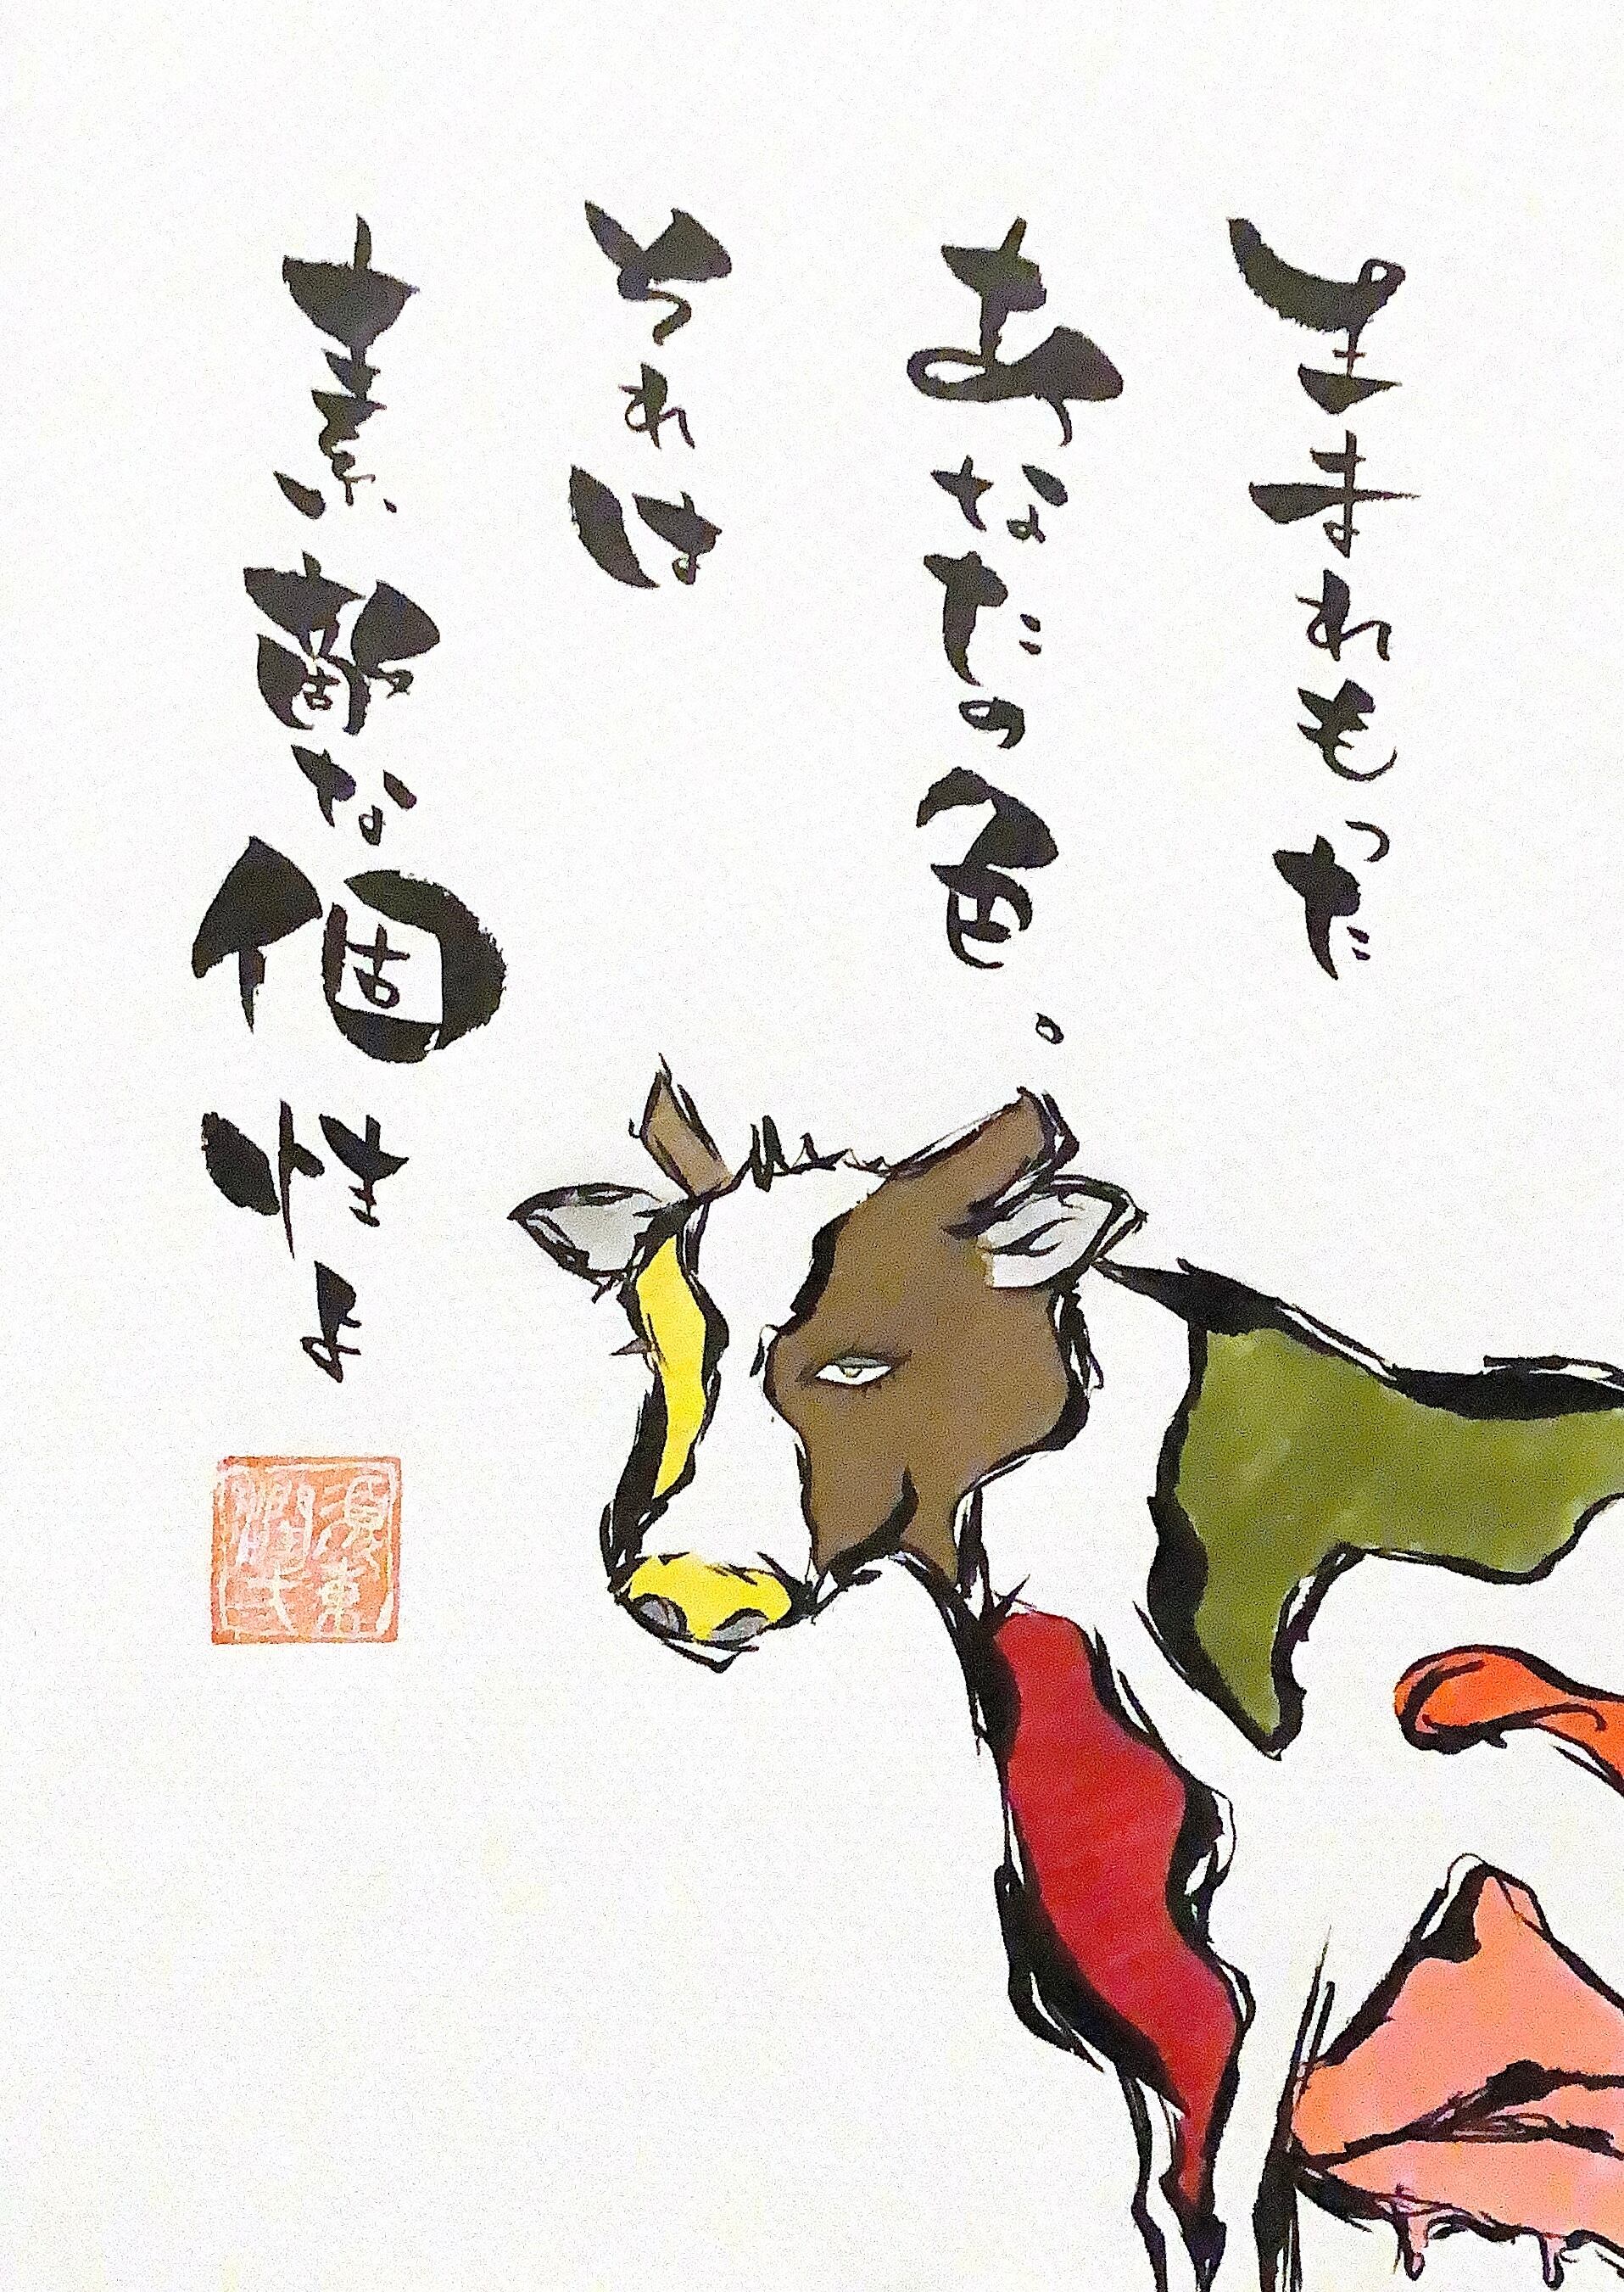 生まれもった
あなたの色。
それは
素敵な個性よ